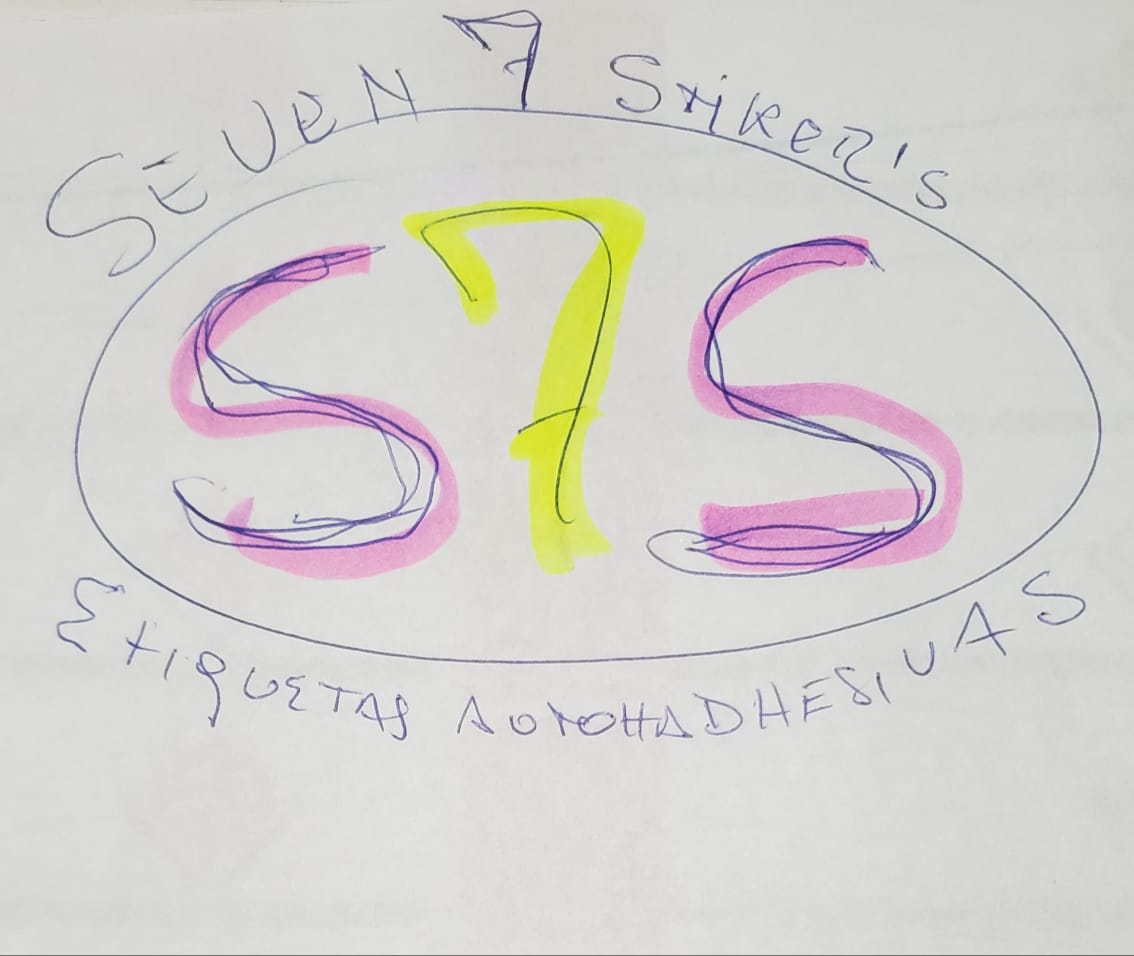 SEVEN 7 StiKER'S
S7S
EtiqUETAS AUTOHADHESIVAS